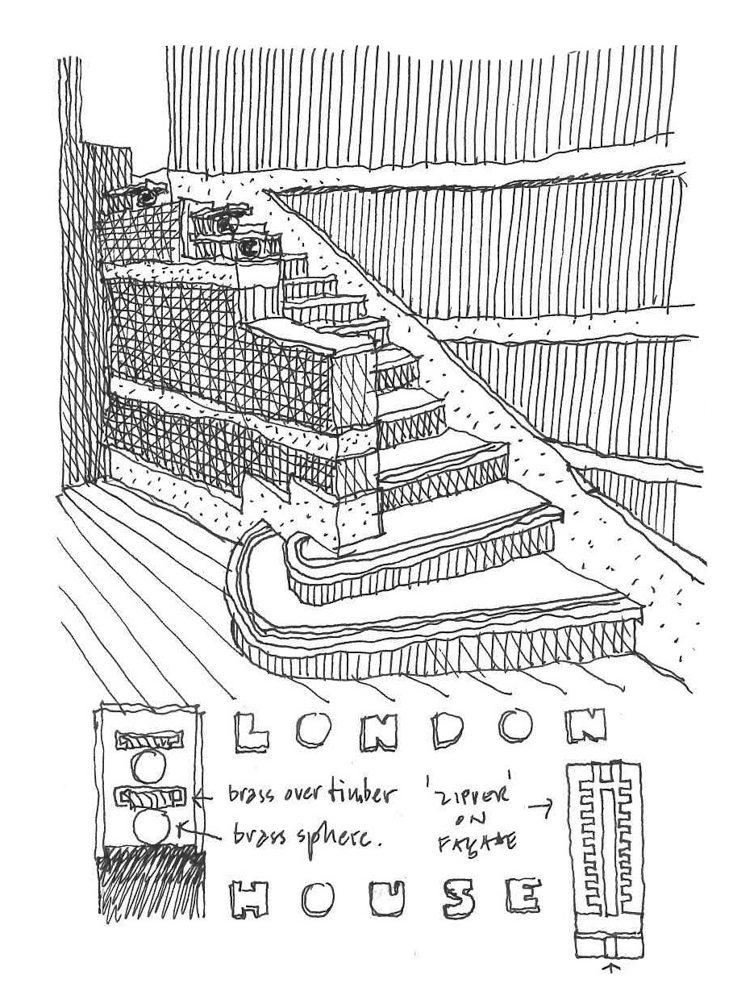 LONDON
brass over timber
brass sphere.
'ZIPPER'
ON
FAÇADE
HOUSE